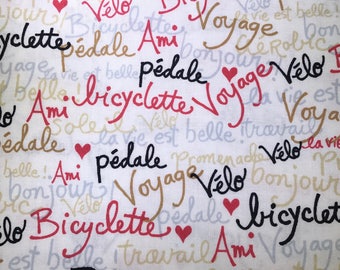 Vélo Bicyclette Voyage
la vie est belle
pédale Ami bonjour Le Robic
la vie est belle! pédale Vélo
Ami bicyclette Voyage
pédale soleil la vie
vie est belle! travail
Ami pédale Promenade Vélo
belle! Voyage Vélo bonjour
bonjour
Bicyclette bicyclette
Vélo travail Ami Voyage